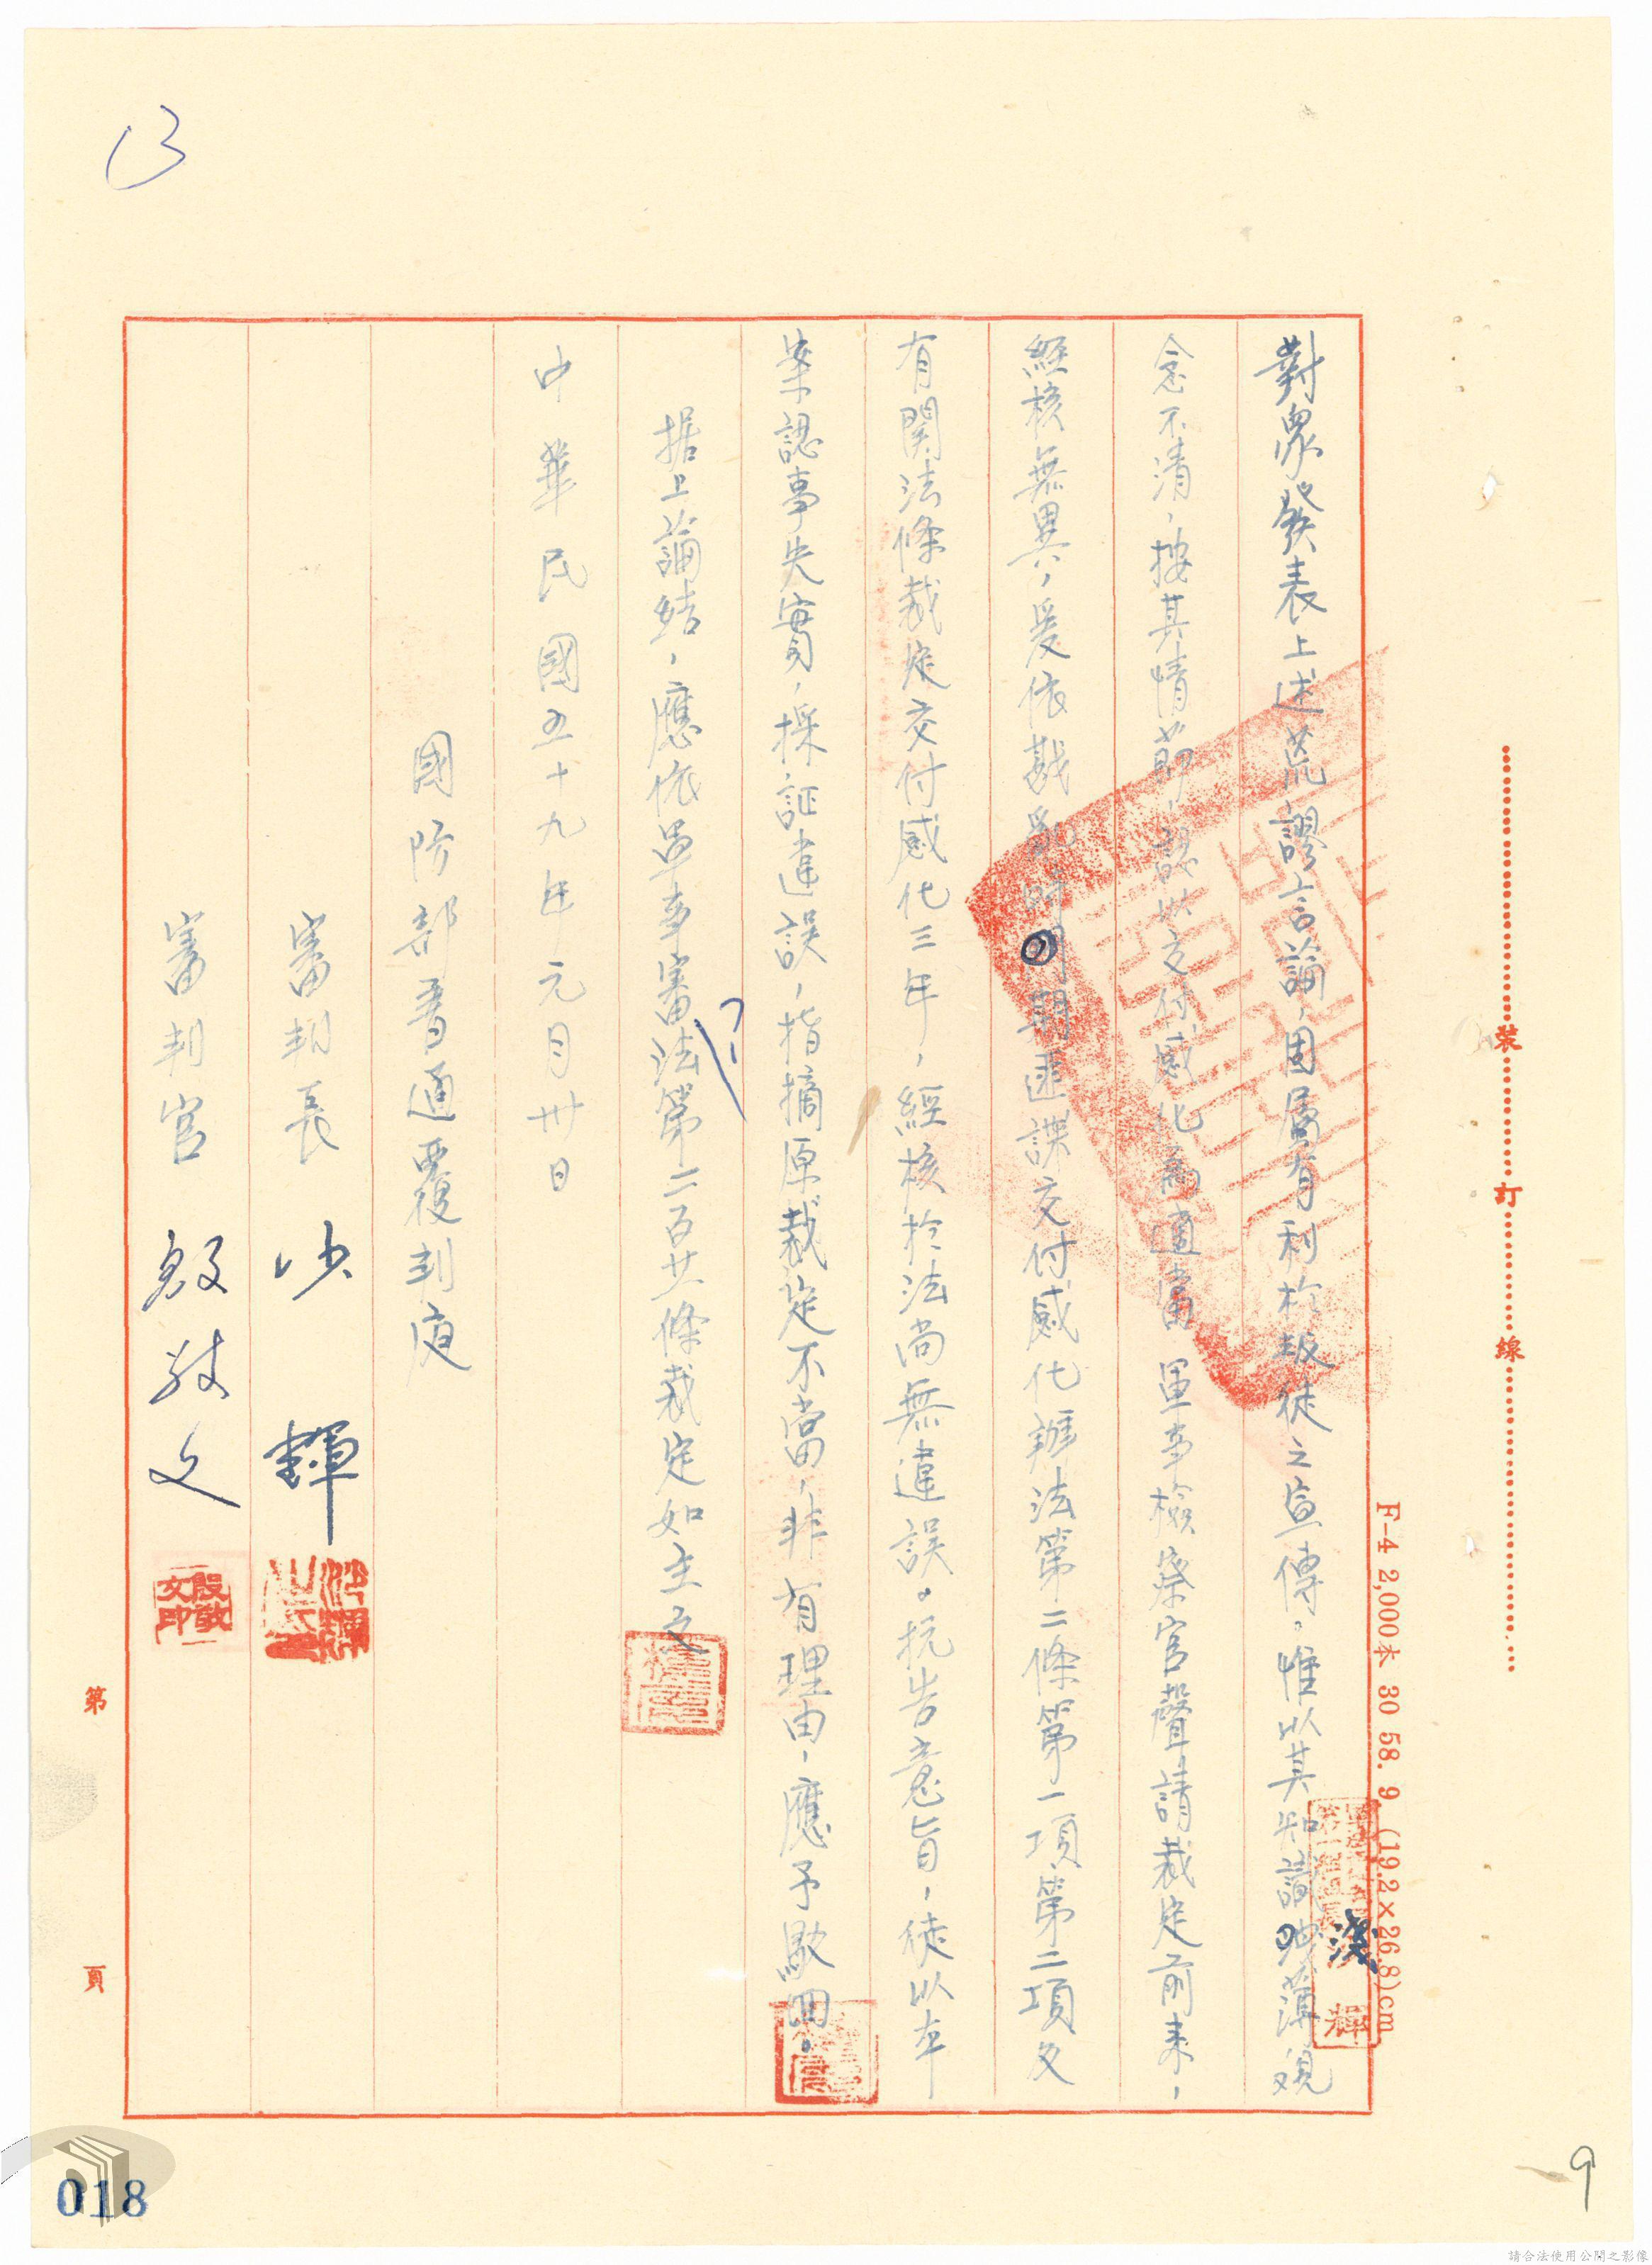 對象發表上述荒謬言論，固屬有利於叛徒之宣傳。惟以其知識淺薄觀
念不清，按其情節，認以交付感化為適當 軍事檢察官聲請裁定前來，
經核無異，爰依戡亂時期匪諜交付感化辦法第二條第一項第二項及
有關法條裁定交付感化三年，經核於法尚無違誤。抗告意旨，徒以本
案認事失實，採証違誤，指摘原裁定不當，非有理由，應予駁回。
据上論結，應依軍事審法第二百廿條裁定如主文
中華民國五十九年元月卅日
國防部普通覆判庭
審判長 沙輝
審判官 殷敬文
沙輝
殷敬文印
第 頁
裝 訂 線
F-4 2,000本 30 58. 9 (19.2×26.8)cm
輝
9
018
請合法使用公開之影像